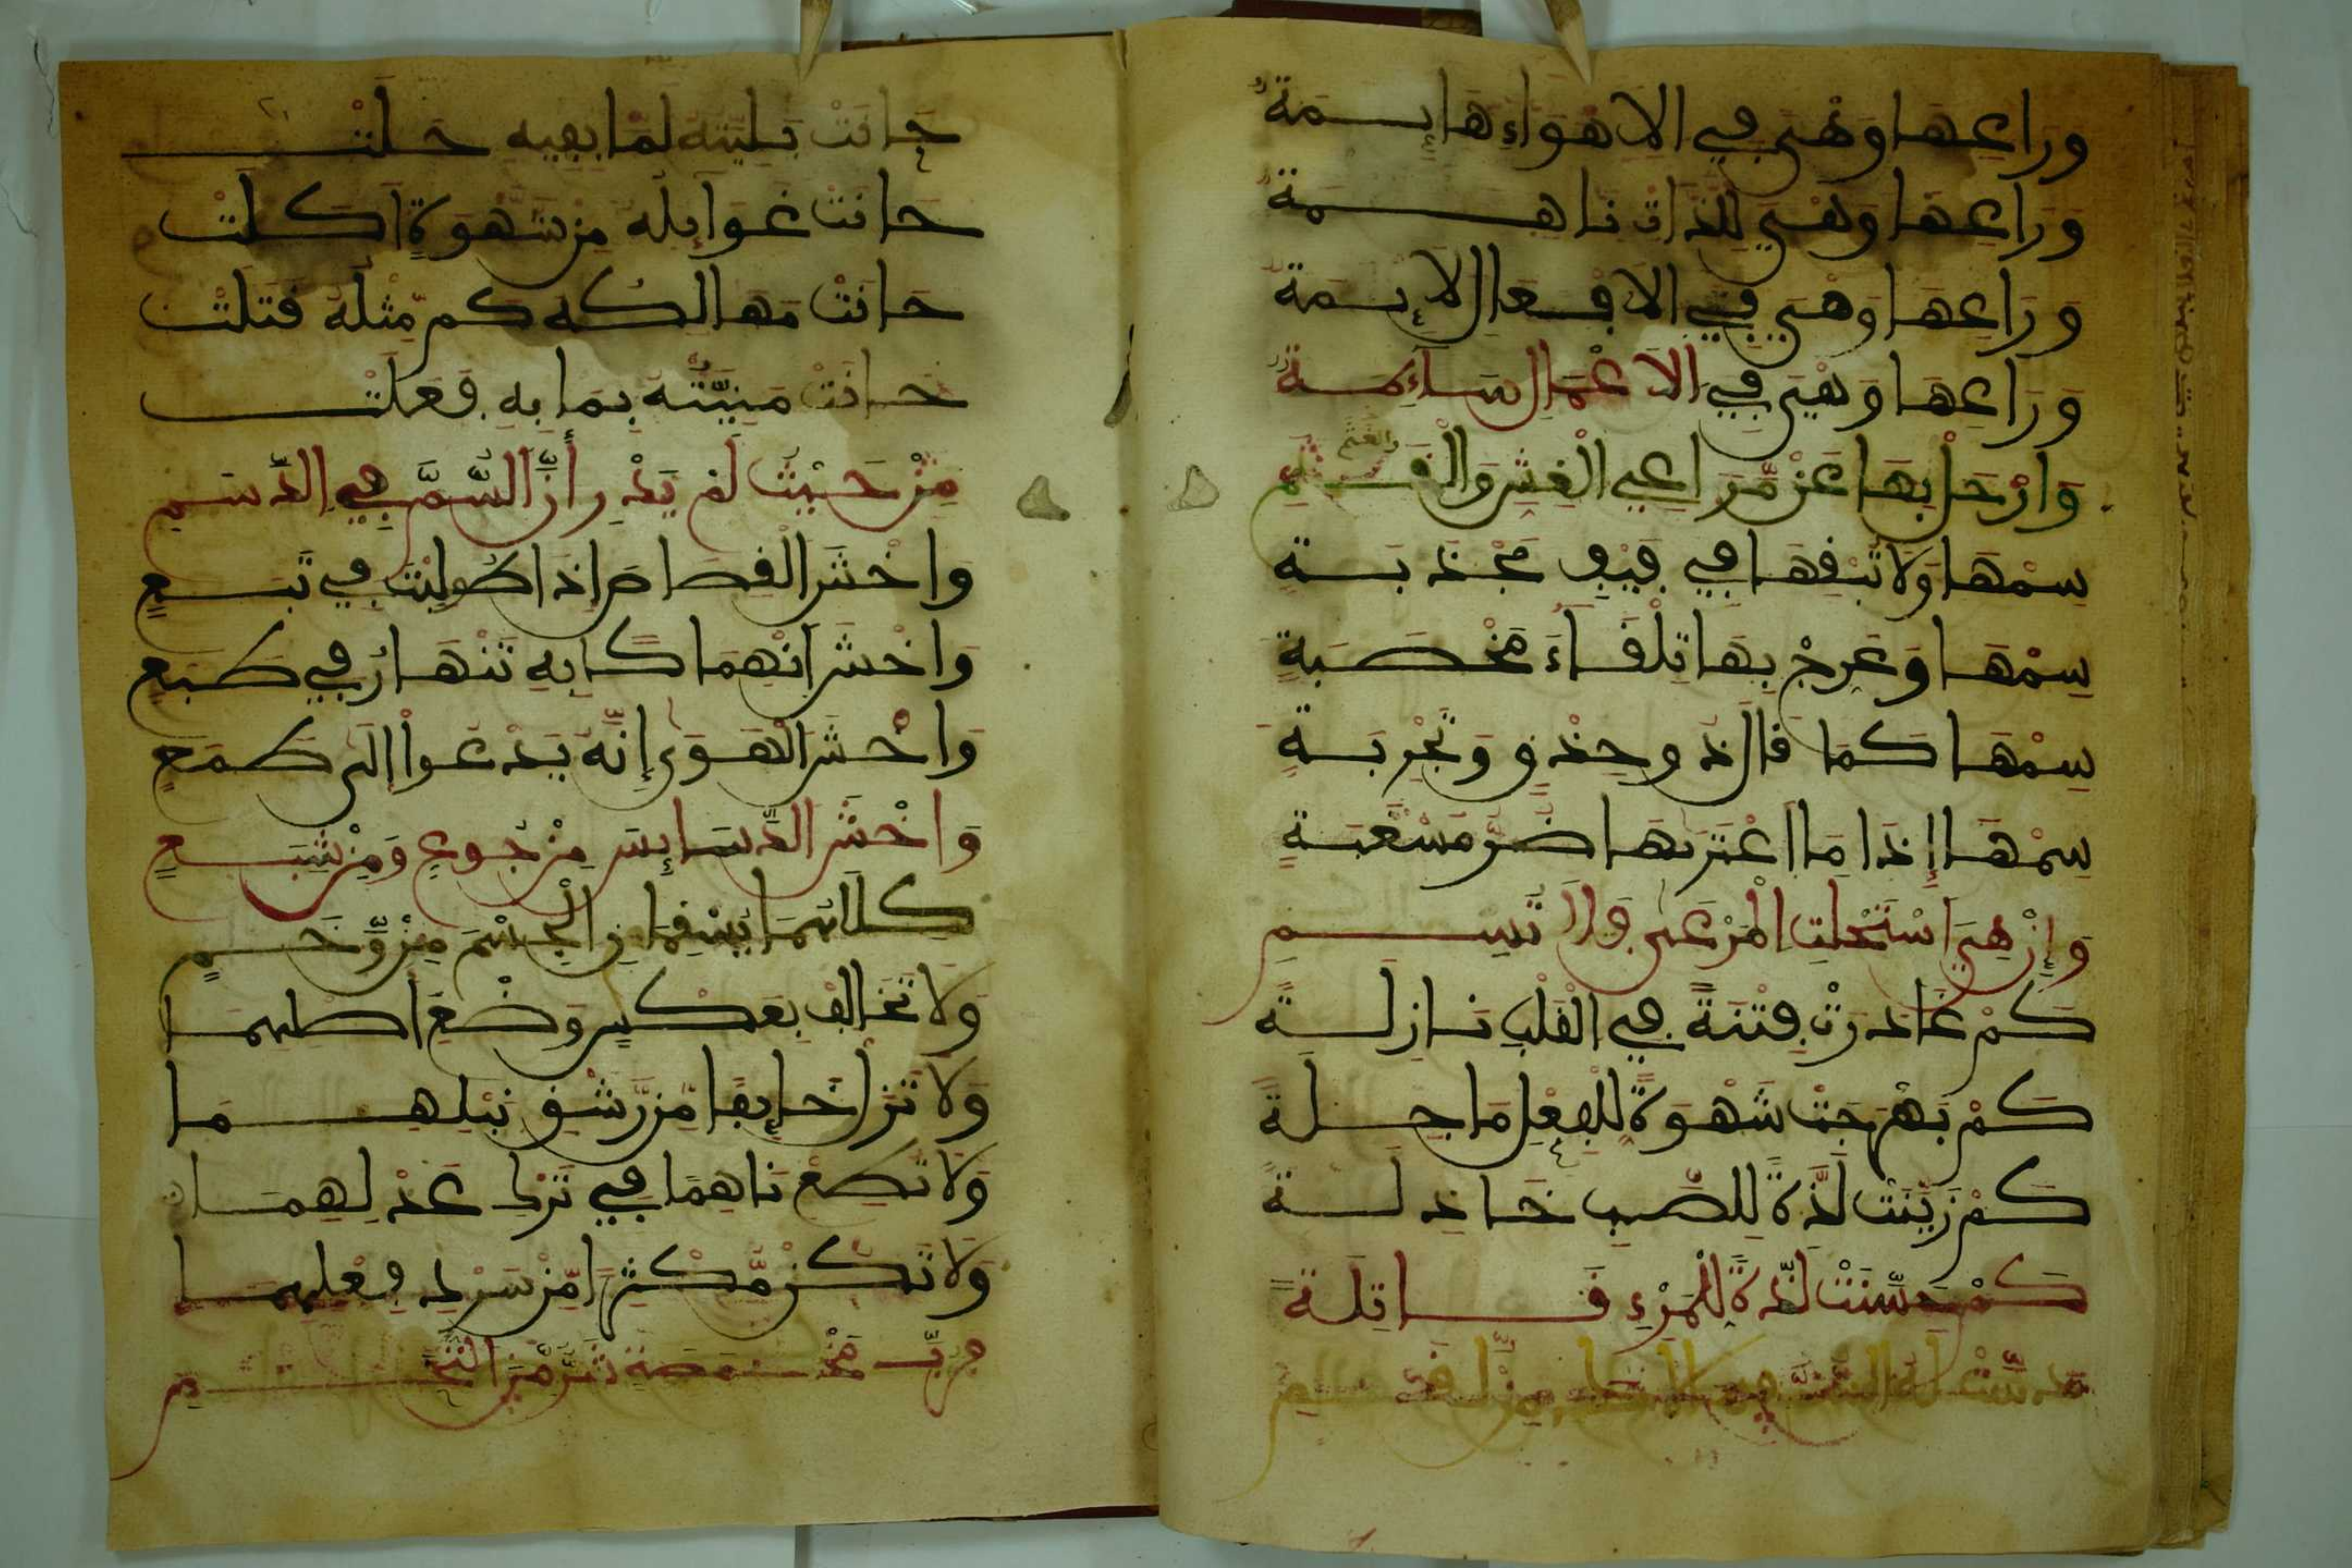 وَرَاعِهَا وَهْيَ فِي الَاهْوَاءِ هَائِمَةٌ
وَرَاعِهَا وَهْيَ لِلَّذَّاتِ نَاهِمَةٌ
وَرَاعِهَا وَهْيَ فِي الَافْعَالِ آثِمَةٌ
وَرَاعِهَا وَهْيَ فِي الَاعْمَالِ سَائِمَةٌ
وَارْحَلْ بِهَا عَنْ مَّرَاعِي الْغِشِّ وَ
سِمْهَا وَلَا تُبْقِهَا فِي مَجْدَبَةٍ
سِمْهَا وَعَرِّجْ بِهَا تِلْقَاءَ مَخْصَبَةٍ
سِمْهَا كَمَا قَالَ ذُو حِذْقٍ وَتَجْرِبَةٍ
سِمْهَا إِذَا مَا اعْتَرَتْهَا ضُرُّ مَسْغَبَةٍ
وَإِنْ هِيَ اسْتَحْلَتِ الْمَرْعَى فَلَا تُسِمِ
كَمْ غَادَرَتْ فِتْنَةً فِي الْقَلْبِ نَازِلَةً
كَمْ بَهْرَجَتْ شَهْوَةً لِلْفِعْلِ مَاحِلَةً
كَمْ زَيَّنَتْ لَذَّةً لِلصَّبِّ خَاذِلَةً
كَمْ حَسَّنَتْ لَذَّةً لِلْمَرْءِ قَاتِلَةً
خَانَتْ بَلِيَّتُهُ لَمَّا بِفِيهِ حَلَتْ
حَانَتْ غَوَائِلُهُ مِن شَهْوَةٍ أَكَلَتْ
حَانَتْ مَهَالِكُهُ كَم مِّثْلَهُ قَتَلَتْ
حَانَتْ مَنِيَّتُهُ بِمَا بِهِ فَعَلَتْ
مِنْ حَيْثُ لَمْ يَدْرِ أَنَّ السُّمَّ فِي الدَّسَمِ
وَاخْشَ الْقِصَاصَ إِذَا طُولِبْتَ فِي تَبَعٍ
وَاخْشَ انْهِمَاكًا بِهِ تَنْهَارُ فِي طَبَعٍ
وَاخْشَ الْهَوَى إِنَّهُ يَدْعُوا إِلَى طَمَعٍ
وَاخْشَ الدَّسَائِسَ مِنْ جُوعٍ وَمِنْ شِبَعٍ
كِلَاهُمَا يُسْقِمَانِ الْجِسْمَ مِنْ وَّخَمٍ
وَلَا تُخَالِفْ بِعَكْسٍ وَضْعَ أَصْلِهِمَا
وَلَا تَزَلْ خَائِفًا مِّن رَّشْقِ نَبْلِهِمَا
وَلَا تُطِعْ نَاهِمًا فِي تَرْكِ عَذْلِهِمَا
وَلَا تَكُنْ مُّكْثِرًا مِّنْ سَرْدِ فِعْلِهِمَا
فَرُبَّ مَخْمَصَةٍ شَرٌّ مِّنَ التُّخَمِ